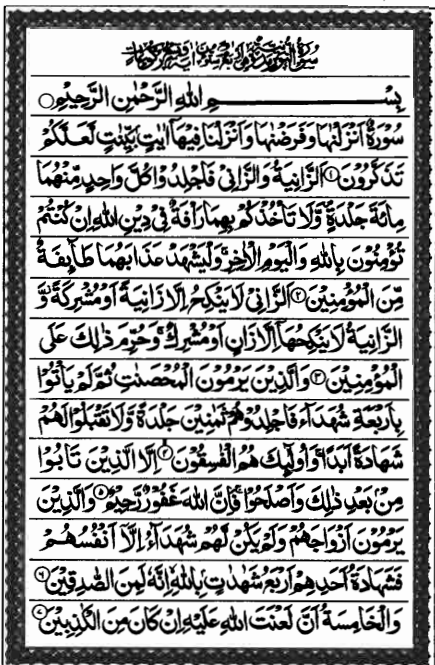 بِسْــــــمِ اللهِ الرَّحْمٰنِ الرَّحِيْمِ
سُوْرَةٌ اَنْزَلْنٰهَا وَفَرَضْنٰهَا وَاَنْزَلْنَا فِيْهَآ اٰيٰتٍۭ بَيِّنٰتٍ لَّعَلَّكُمْ
تَذَكَّرُوْنَ ۝۱ اَلزَّانِيَةُ وَالزَّانِيْ فَاجْلِدُوْا كُلَّ وَاحِدٍ مِّنْهُمَا
مِائَةَ جَلْدَةٍ وَّلَا تَاْخُذْكُمْ بِهِمَا رَاْفَةٌ فِيْ دِيْنِ اللهِ اِنْ كُنْتُمْ
تُؤْمِنُوْنَ بِاللهِ وَالْيَوْمِ الْاٰخِرِ وَلْيَشْهَدْ عَذَابَهُمَا طَآئِفَةٌ
مِّنَ الْمُؤْمِنِيْنَ ۝۲ اَلزَّانِيْ لَا يَنْكِحُ اِلَّا زَانِيَةً اَوْ مُشْرِكَةً وَّ
الزَّانِيَةُ لَا يَنْكِحُهَآ اِلَّا زَانٍ اَوْ مُشْرِكٌ وَحُرِّمَ ذٰلِكَ عَلَى
الْمُؤْمِنِيْنَ ۝۳ وَالَّذِيْنَ يَرْمُوْنَ الْمُحْصَنٰتِ ثُمَّ لَمْ يَاْتُوْا
بِاَرْبَعَةِ شُهَدَآءَ فَاجْلِدُوْهُمْ ثَمٰنِيْنَ جَلْدَةً وَّلَا تَقْبَلُوْا لَهُمْ
شَهَادَةً اَبَدًا وَاُولٰٓئِكَ هُمُ الْفٰسِقُوْنَ ۝۴ اِلَّا الَّذِيْنَ تَابُوْا
مِنْۢ بَعْدِ ذٰلِكَ وَاَصْلَحُوْا فَاِنَّ اللهَ غَفُوْرٌ رَّحِيْمٌ ۝۵ وَالَّذِيْنَ
يَرْمُوْنَ اَزْوَاجَهُمْ وَلَمْ يَكُنْ لَّهُمْ شُهَدَآءُ اِلَّآ اَنْفُسُهُمْ
فَشَهَادَةُ اَحَدِهِمْ اَرْبَعُ شَهٰدٰتٍۭ بِاللهِ اِنَّهٗ لَمِنَ الصّٰدِقِيْنَ ۝۶
وَالْخَامِسَةُ اَنَّ لَعْنَتَ اللهِ عَلَيْهِ اِنْ كَانَ مِنَ الْكٰذِبِيْنَ ۝۷